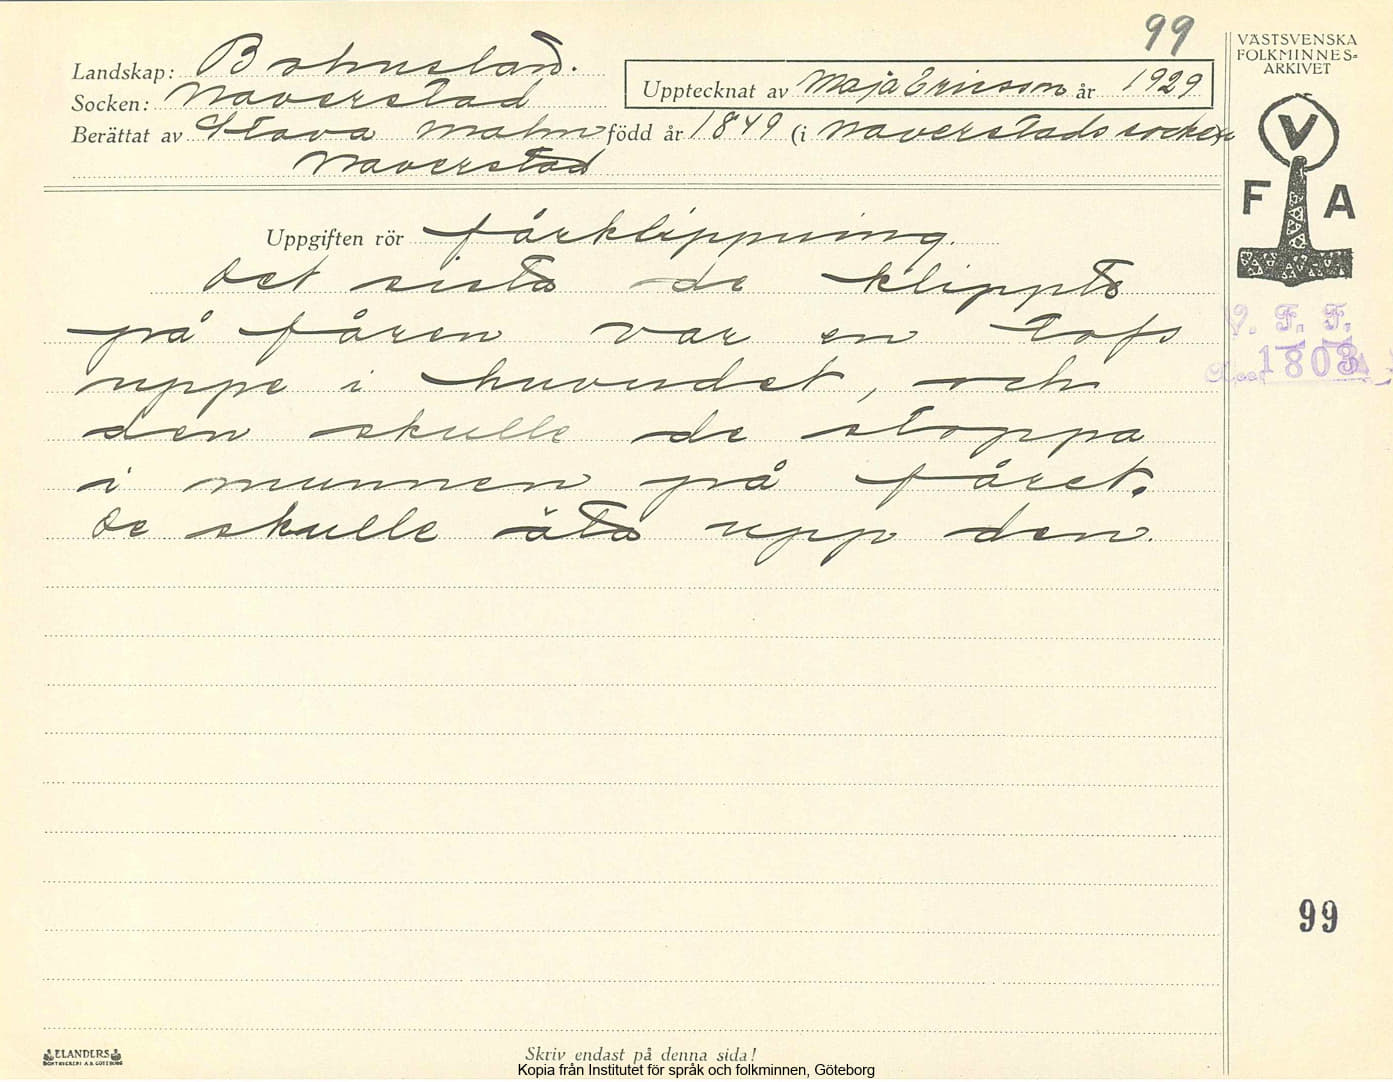 99
VÄSTSVENSKA
FOLKMINNES-
ARKIVET
Landskap: Bohuslän.
Socken: Naverstad
Upptecknat av Maja Ericson år 1929
Berättat av Stava Malm född år 1849 (i Naverstads socken
Naverstad
V
F A
Uppgiften rör fårklippning.
Det sista de klippte
på fåren var en tofs
uppe i huvudet, och
den skulle de stoppa
i munnen på fåret.
De skulle äta upp den.
V. F. F.
1803
99
ELANDERS
BOKTRYCKERI A.B. GÖTEBORG
Skriv endast på denna sida!
Kopia från Institutet för språk och folkminnen, Göteborg